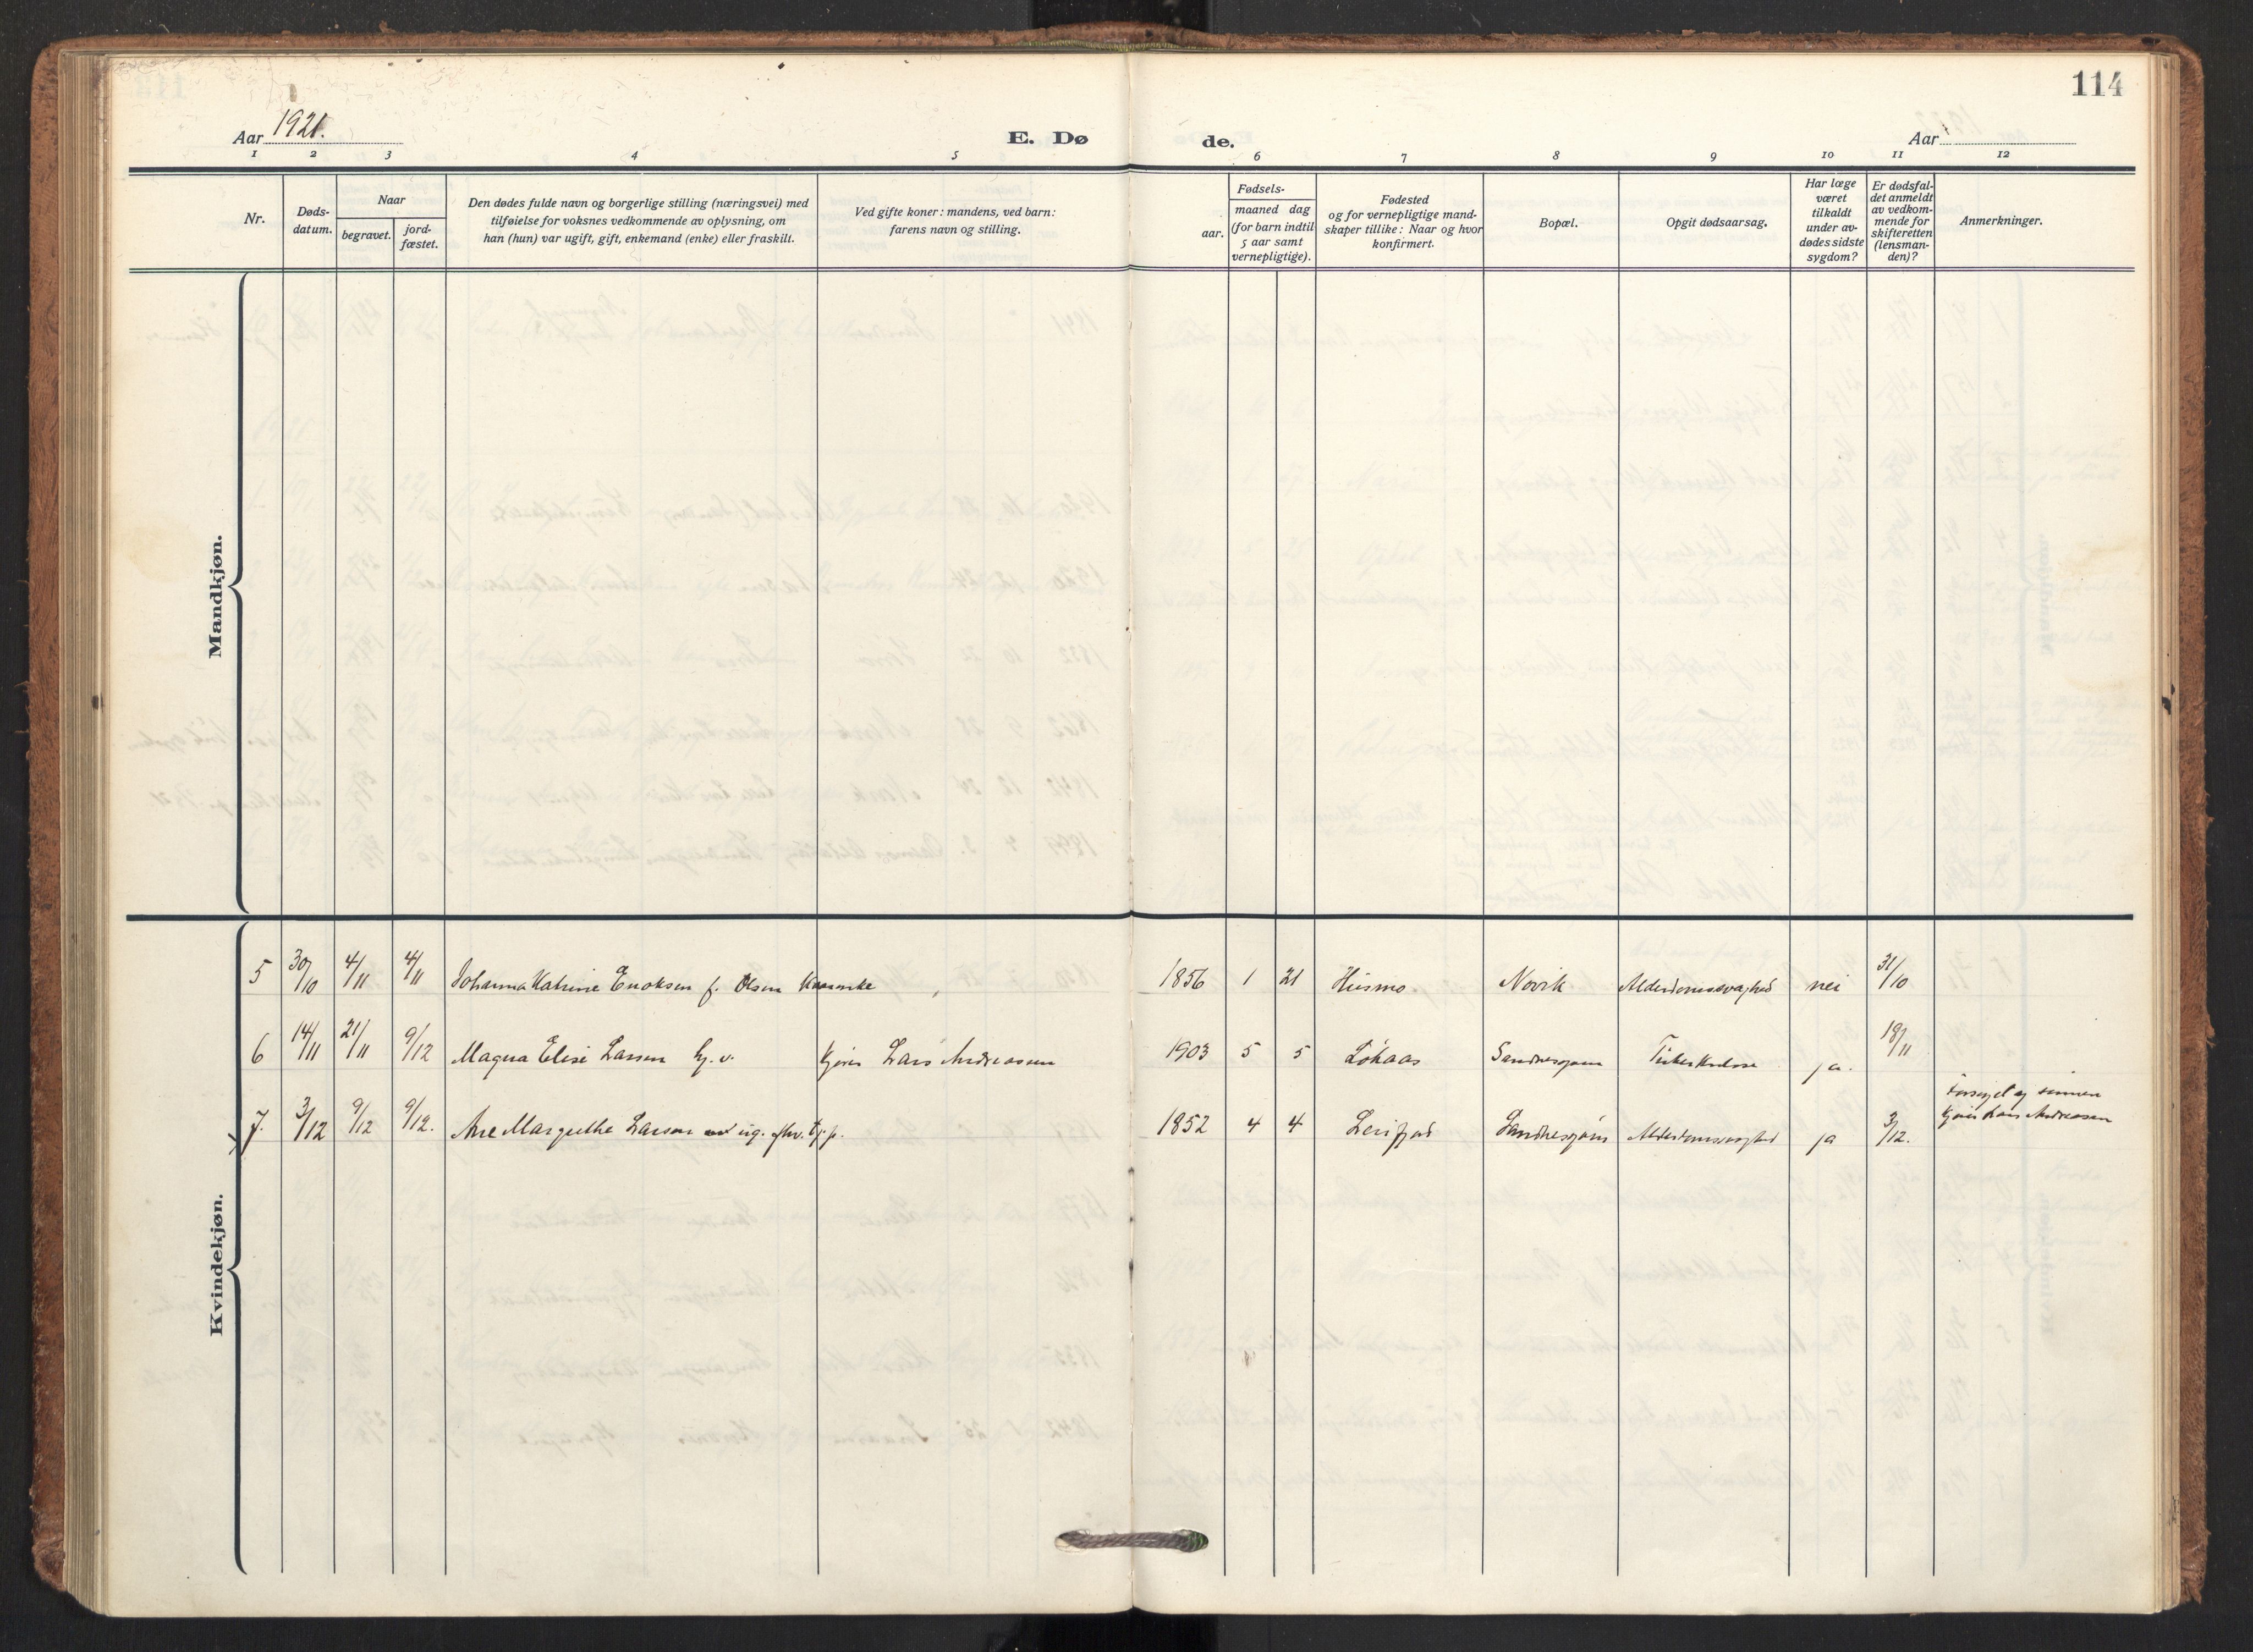 114
Aar 1921.
E. Dø
de.
Aar
1 2 3 4 5 6 7 8 9 10 11 12
Nr.
Døds-
datum.
Naar
begravet.
jord-
fæstet.
Den dødes fulde navn og borgerlige stilling (næringsvei) med
tilføielse for voksnes vedkommende av oplysning, om
han (hun) var ugift, gift, enkemand (enke) eller fraskilt.
Ved gifte koner: mandens, ved barn:
farens navn og stilling.
Fødsels-
aar.
maaned dag
(for barn indtil
5 aar samt
vernepligtige).
Fødested
og for vernepligtige mand-
skaper tillike: Naar og hvor
konfirmert.
Bopæl.
Opgit dødsaarsag.
Har læge
været
tilkaldt
under av-
dødes sidste
sygdom?
Er dødsfal-
det anmeldt
av vedkom-
mende for
skifteretten
(lensman-
den)?
Anmerkninger.
Mandkjøn.
Kvindekjøn.
5 30/10 4/11 4/11 Johanna Katrine Enoksen f. Olsen 1856 1 21 Husmo Novik Alderdomssvaghed nei 31/10
6 14/11 21/11 9/12 Magna Elise Larsen Lars Andreassen 1903 5 5 Løkaas Sandnessjøen Tuberkulose ja. 18/11
7. 3/12 9/12 9/12. Ane Margrethe Larsen 1852 4 4 Leirfjord Sandnessjøen Alderdomssvaghed ja 3/12.
Lars Andreassen